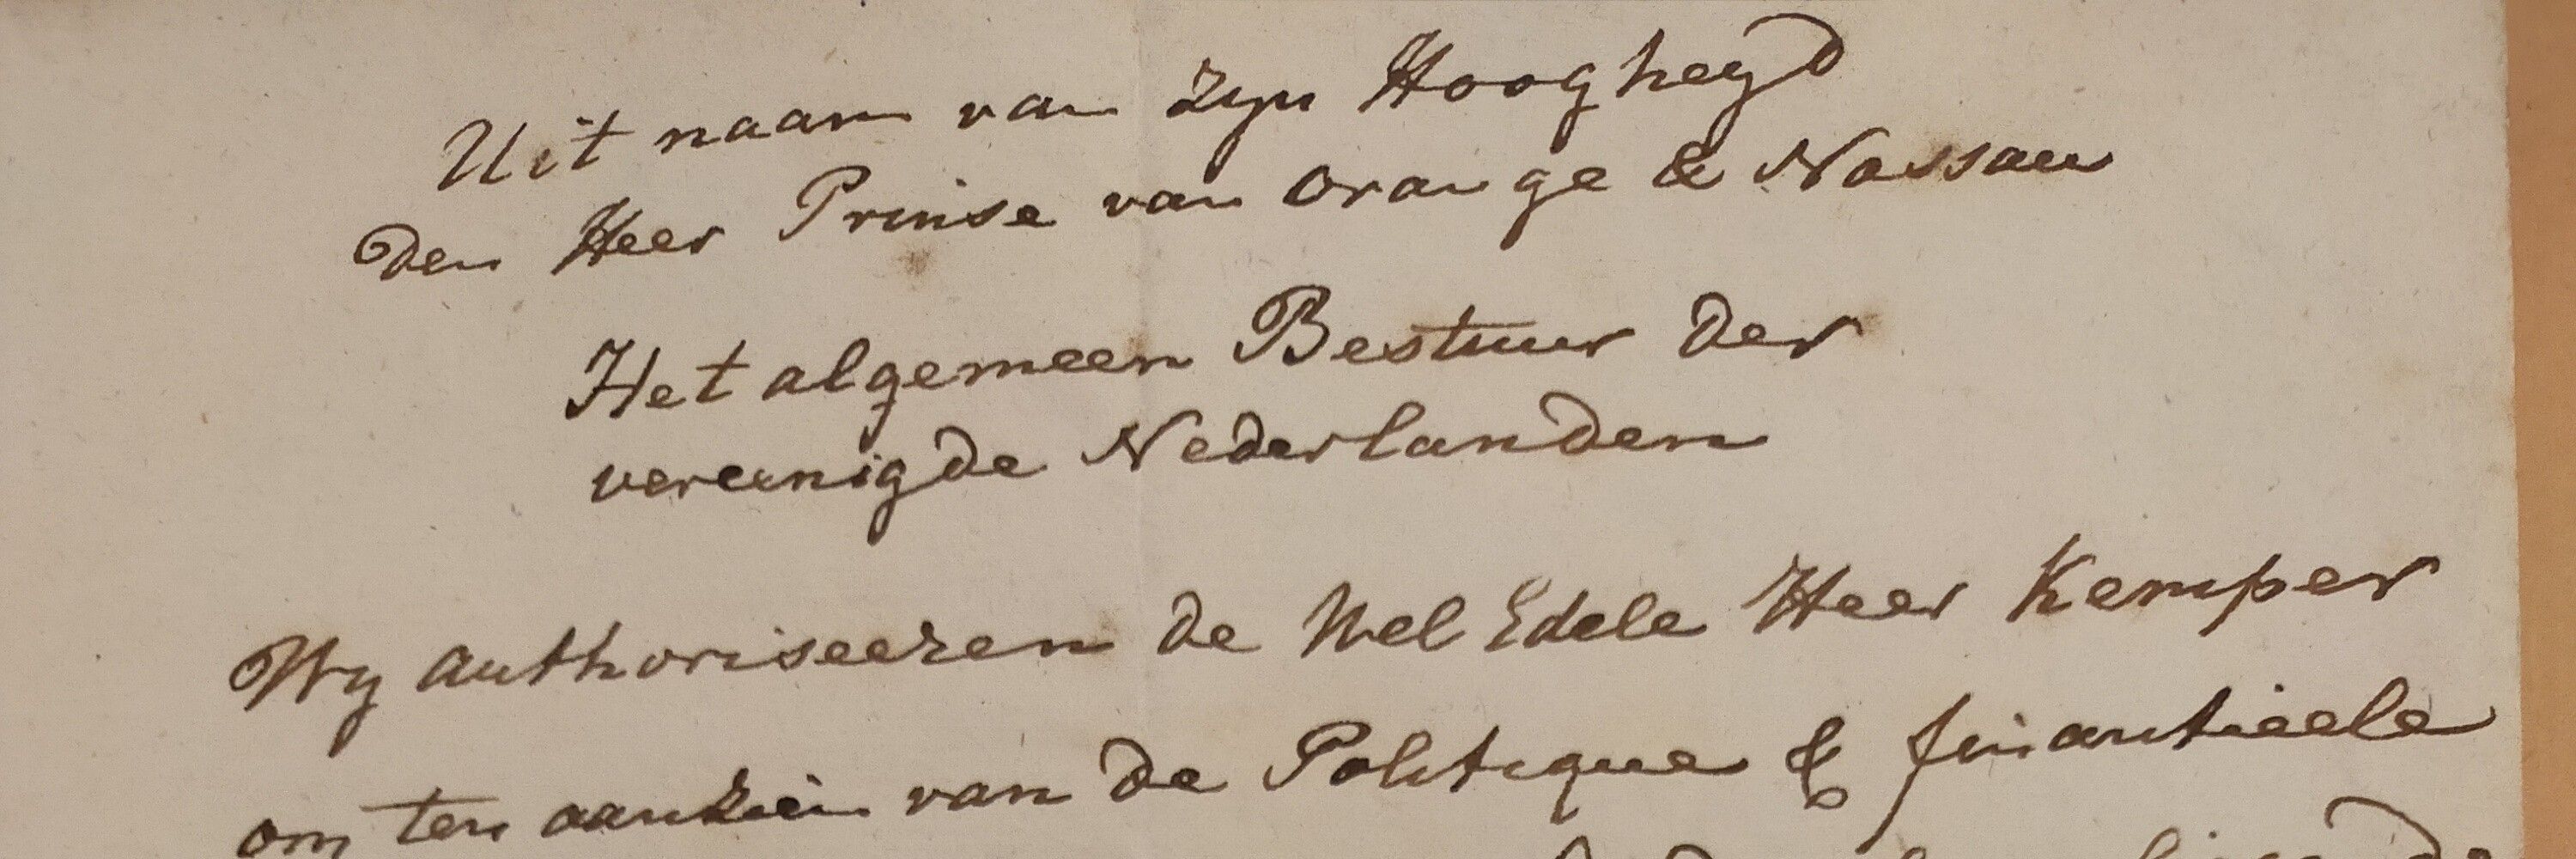 Uit naam van Zyn Hoogheyd
den Heer Prinse van Orange & Nassau
Het algemeen Bestuur der
vereenigde Nederlanden
Wy authoriseeren de Wel Edele Heer Kemper
om ten aanzien van de Politique & finantieele